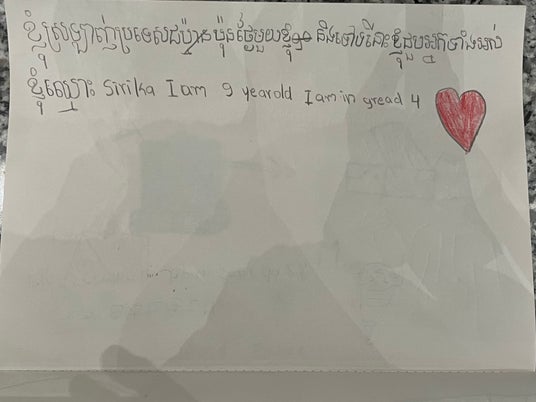 ខ្ញុំស្រឡាញ់ប្រទេសជប៉ុន ថ្ងៃមួយខ្ញុំ និងទៅទីនោះ ខ្ញុំជួបអ្នកទាំងអស់
ខ្ញុំឈ្មោះ Sirika I am 9 yearold I am in gread 4